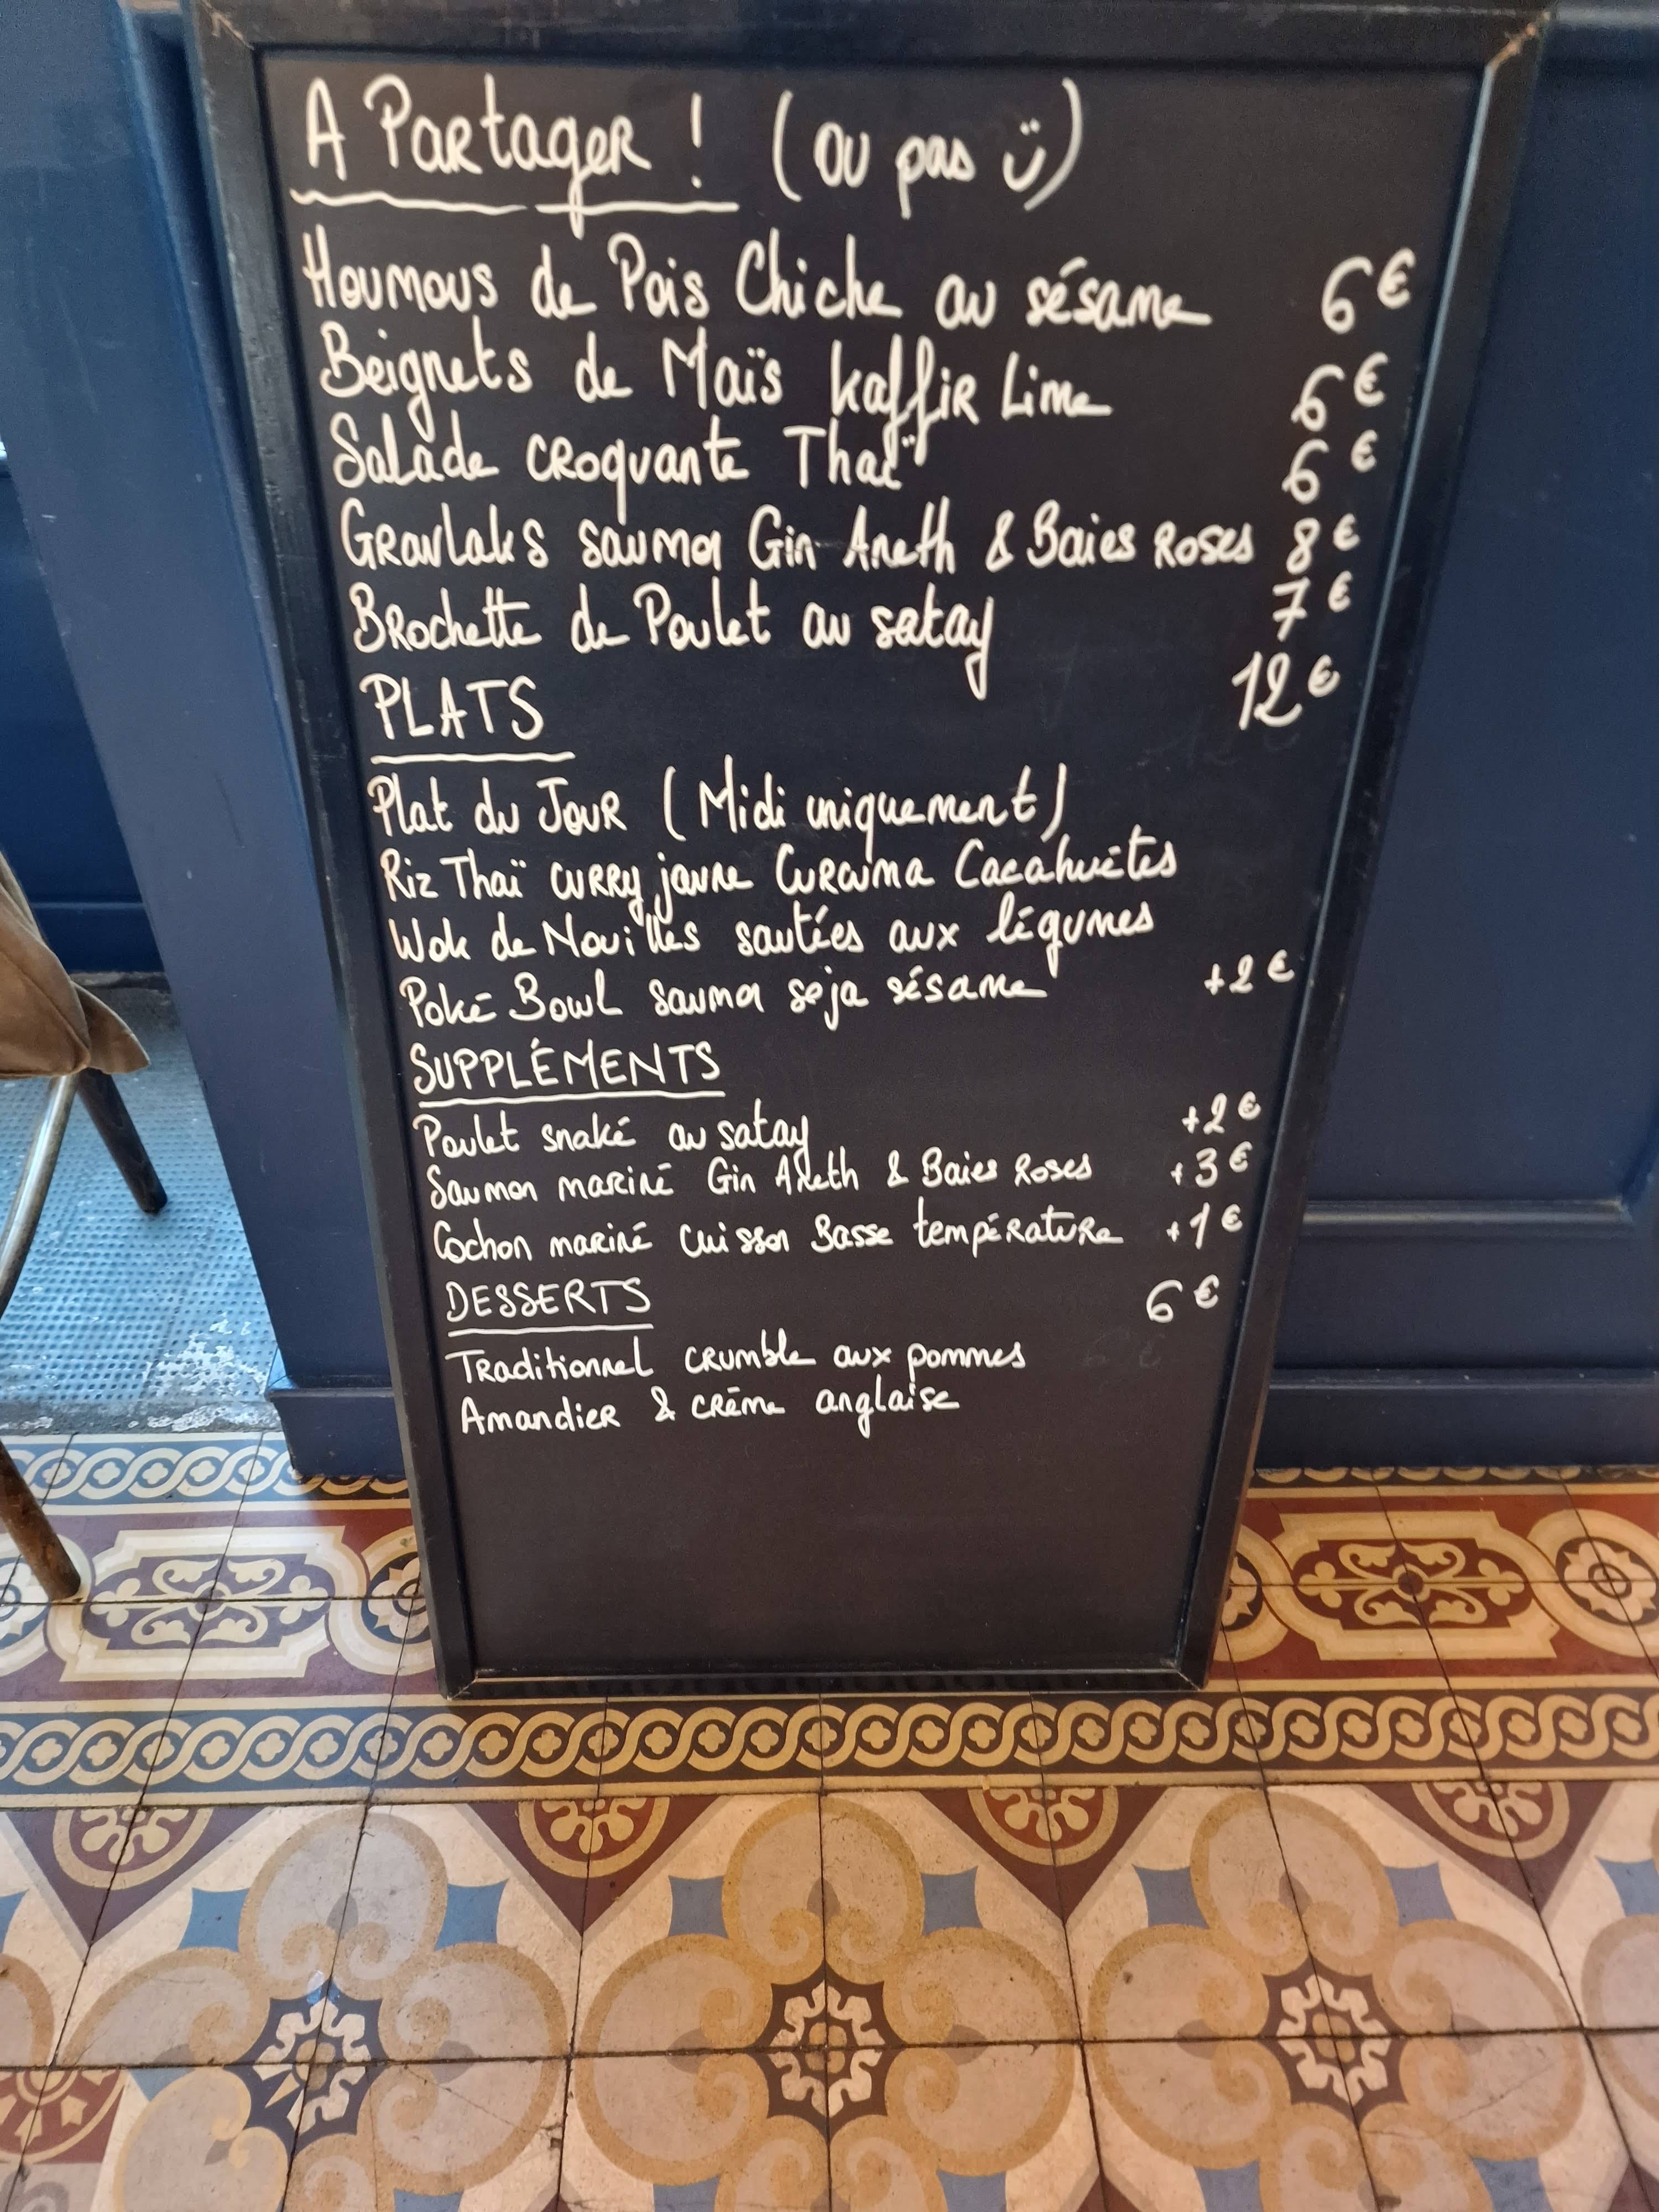 A Partager ! (ou pas ü)
Houmous de Pois Chiche au sésame 6€
Beignets de Maïs kaffir Lime 6€
Salade croquante Thaï 6€
Gravlaks saumon Gin Aneth & Baies Roses 8€
Brochette de Poulet au satay 7€
PLATS 12€
Plat du Jour (Midi uniquement)
Riz Thaï curry jaune Curcuma Cacahuètes
Wok de Nouilles sautées aux légumes
Poké Bowl saumon soja sésame +2€
SUPPLÉMENTS
Poulet snaké au satay +2€
Saumon mariné Gin Aneth & Baies Roses +3€
Cochon mariné cuisson Basse température +1€
DESSERTS 6€
Traditionnel crumble aux pommes
Amandier & crème anglaise